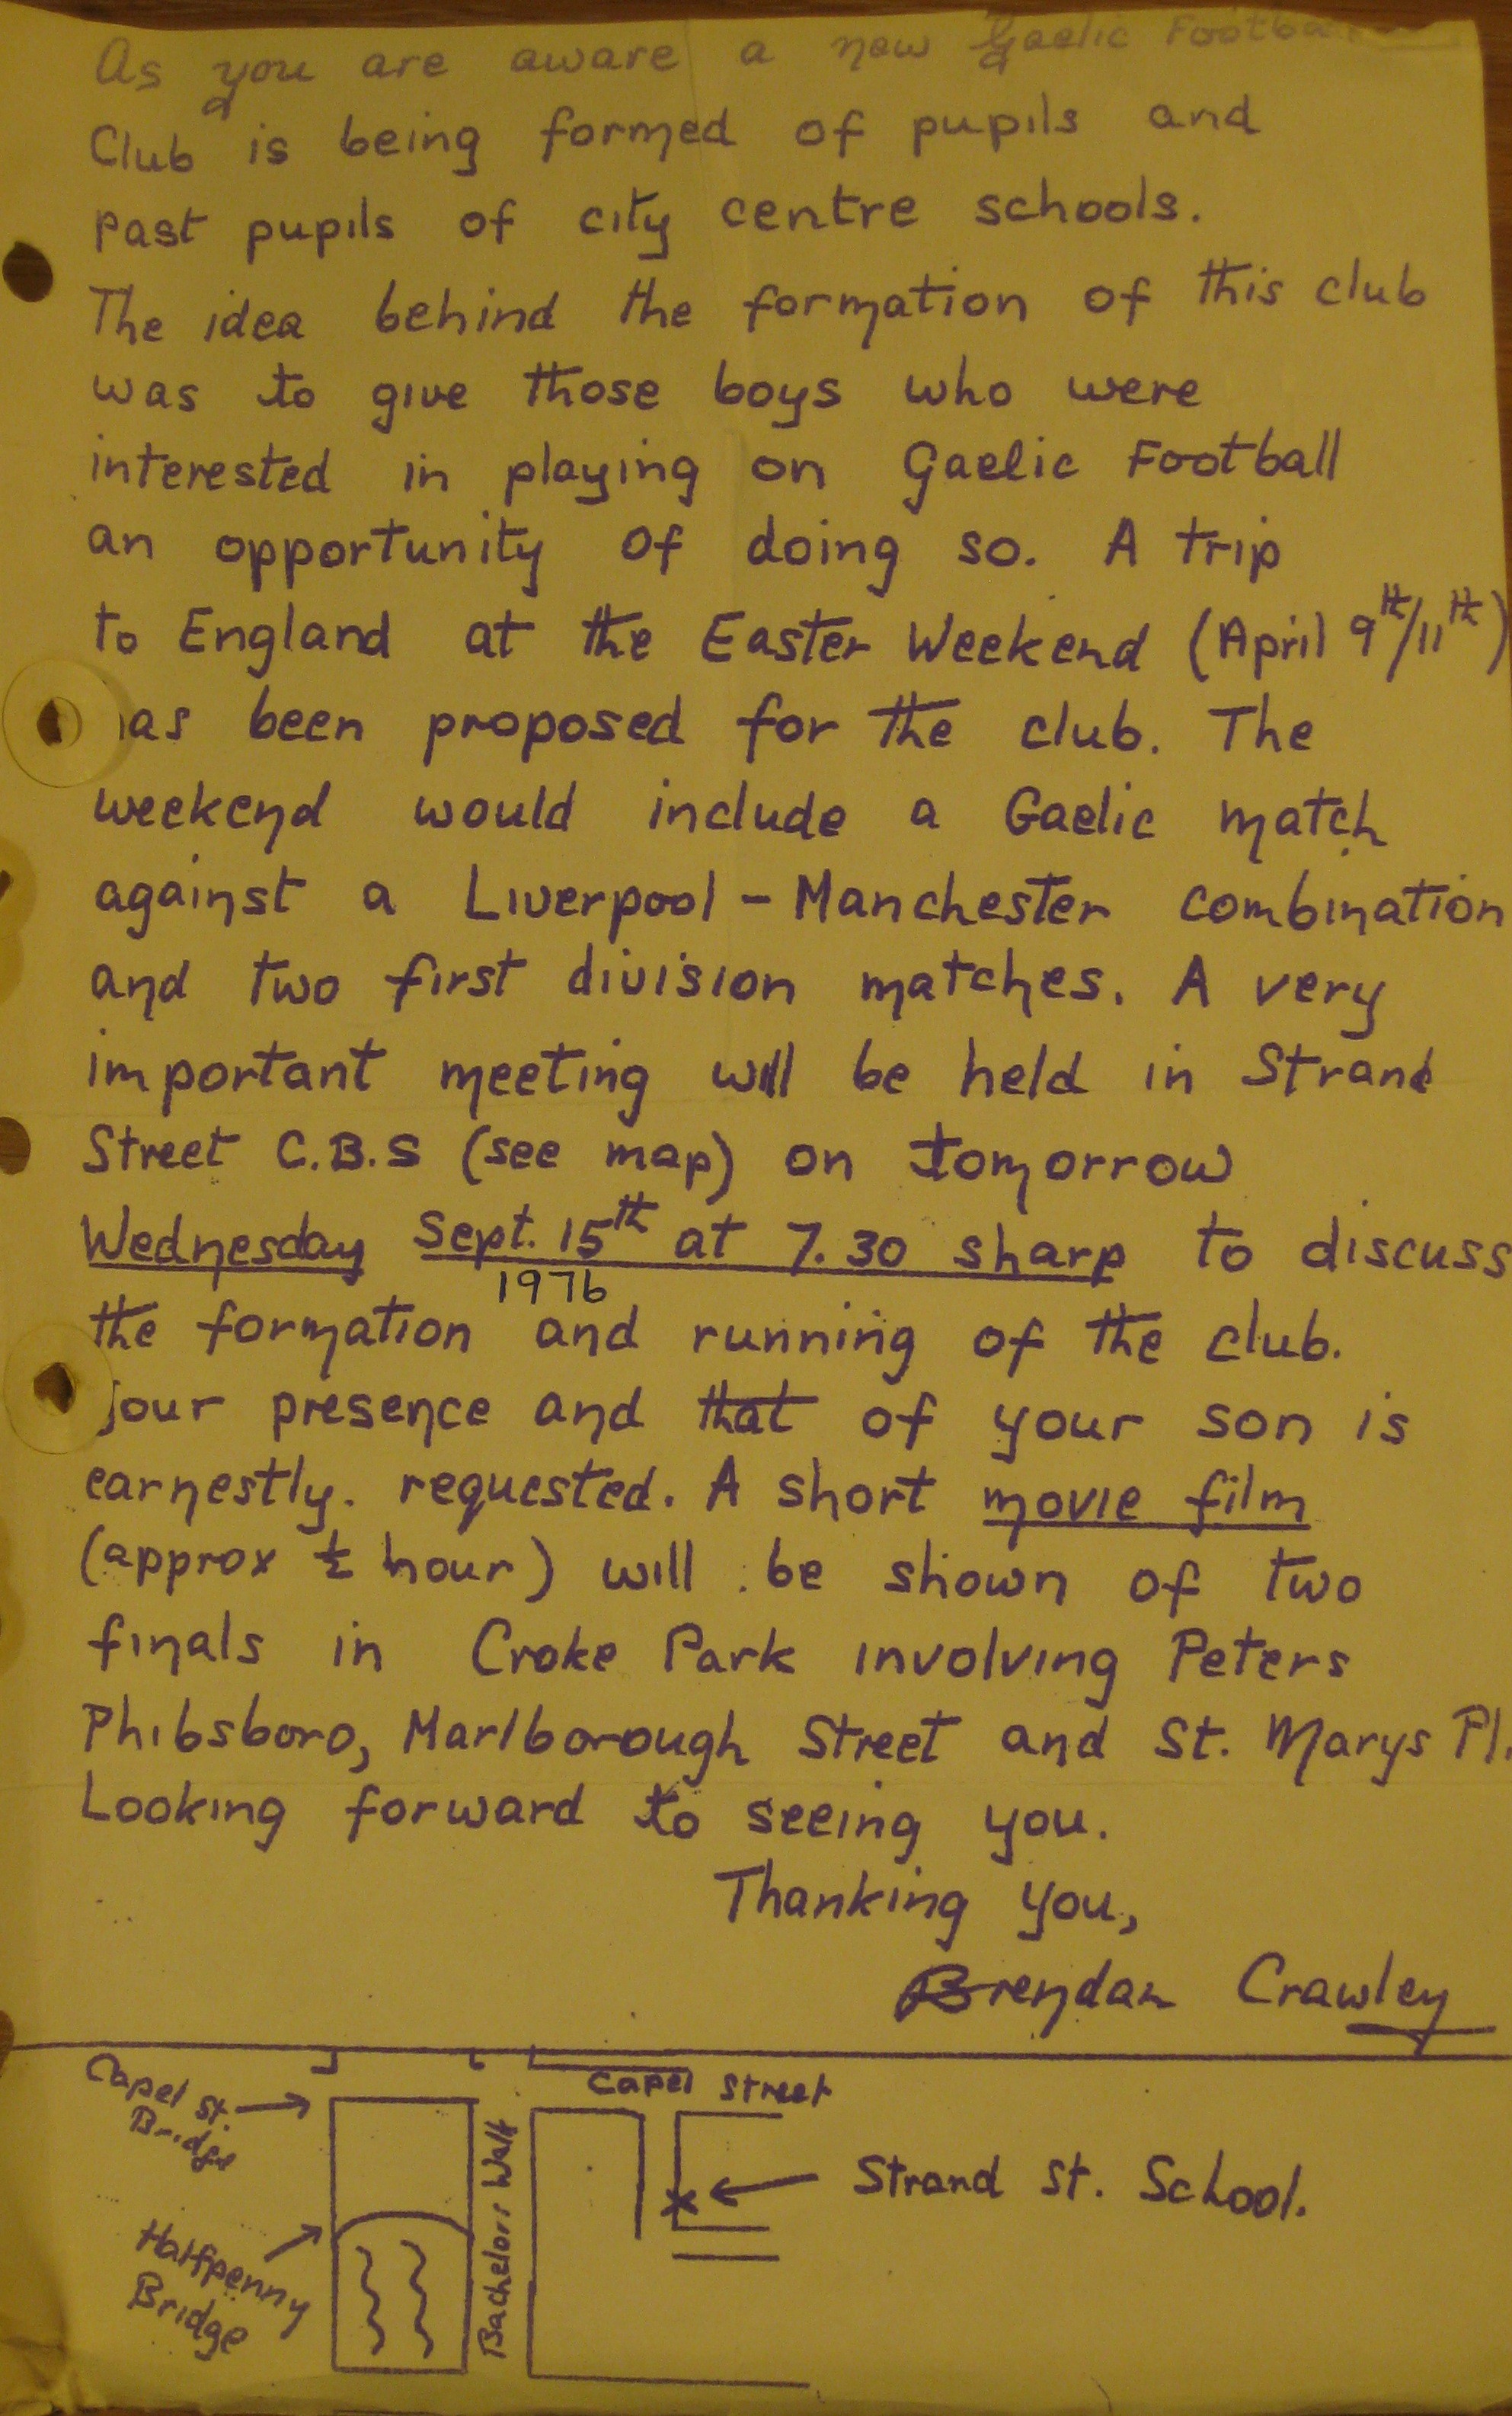 As you are aware a new Gaelic Football
Club is being formed of pupils and
past pupils of city centre schools.
The idea behind the formation of this club
was to give those boys who were
interested in playing on Gaelic Football
an opportunity of doing so. A trip
to England at the Easter Weekend (April 9th/11th)
has been proposed for the club. The
weekend would include a Gaelic match
against a Liverpool - Manchester combination
and two first division matches. A very
important meeting will be held in Strand
Street C.B.S (see map) on tomorrow
Wednesday Sept. 15th at 7.30 sharp to discuss
1976
the formation and running of the club.
Your presence and that of your son is
earnestly. requested. A short movie film
(approx ½ hour) will be shown of two
finals in Croke Park involving Peters
Phibsboro, Marlborough Street and St. Marys Pl.
Looking forward to seeing you.
Thanking you,
Brendan Crawley
Capel St. Bridge
Capel Street
Bachelors Walk
Strand St. School.
Halfpenny Bridge